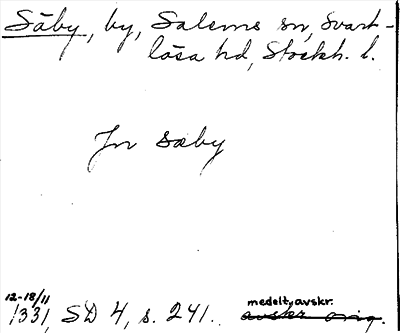 Säby, by, Salems sn, Svart-
lösa hd, Stockh. l.
Jn sæby
12-18/11
1331, SD 4, s. 241. medelt. avskr.
avskr orig.